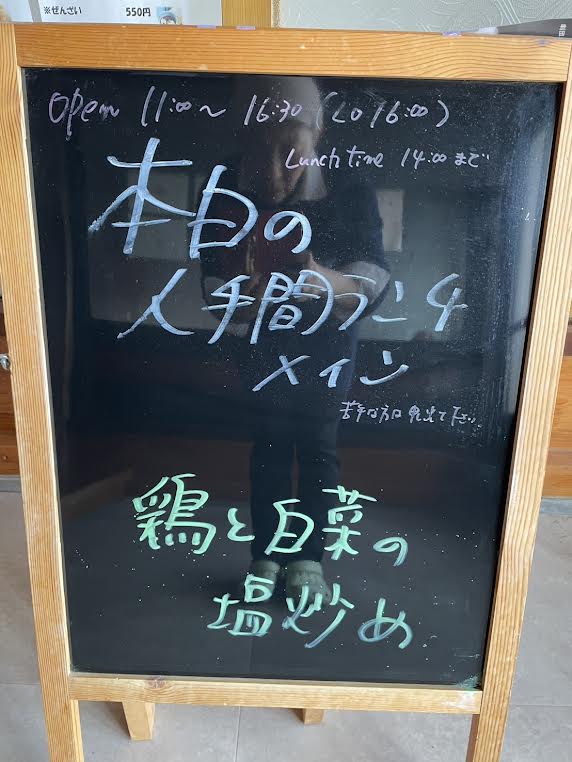 ※ぜんざい 550円
Open 11:00～16:30(LO16:00)
Lunch time 14:00まで
本日の
人手間ランチ
メイン
苦手な方は 申し出て下さい
鶏と白菜の
塩炒め